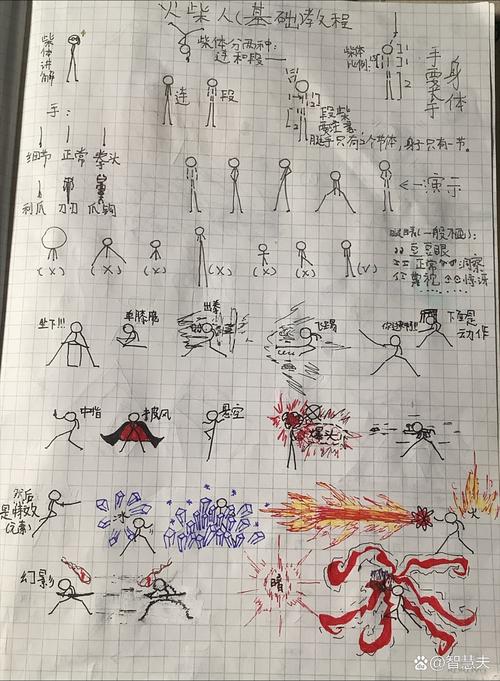 火柴人(基础)教程
柴体讲解
柴体分两种:
连和段
连
段
1=1
1
2
段柴
要注意
腿手只有2个节体,身子只有一节。
柴体
比例:
1
1
2
手要
身体
手:
细节
正常
拳头
利爪
刀刃
爪钩
←演示
(X)
(X)
(X)
(X)
(X)
(X)
(V)
(一般不画):
豆豆眼
正常
洞察
惊讶
坐下!!!
单膝跪
出拳
飞踢
下面是
动作
中指
披风
悬空
爆头
然后
是特效
(元素)
冰
火
幻影
暗
@智慧夫